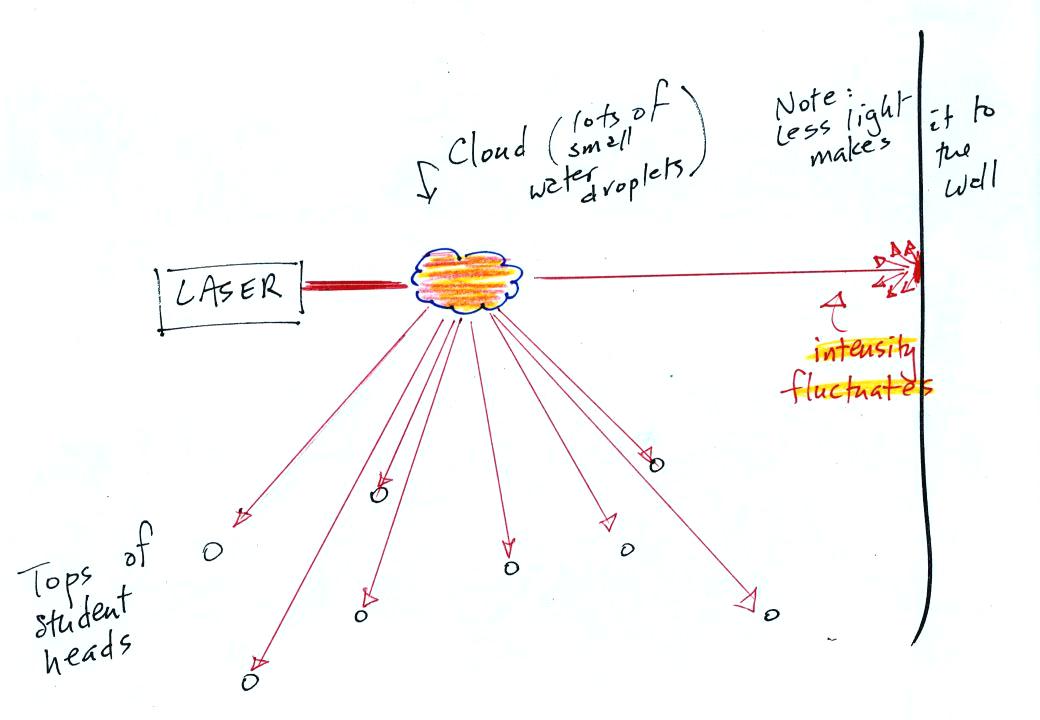 Cloud (lots of
small
water
droplets)
Note:
less light
makes
it to
the
wall
LASER
intensity
fluctuates
Tops of
student
heads